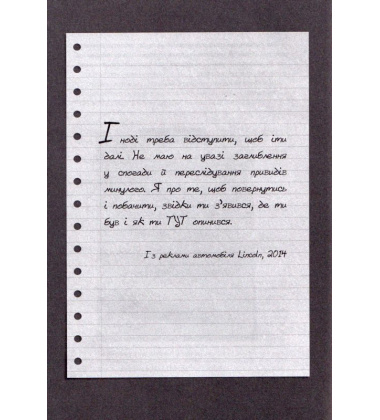 Іноді треба відступити, щоб іти
далі. Не маю на увазі заглиблення
у спогади й переслідування привидів
минулого. Я про те, щоб повернутись
і побачити, звідки ти з'явився, де ти
був і як ти ТУТ опинився.
Із реклами автомобіля Lincoln, 2014